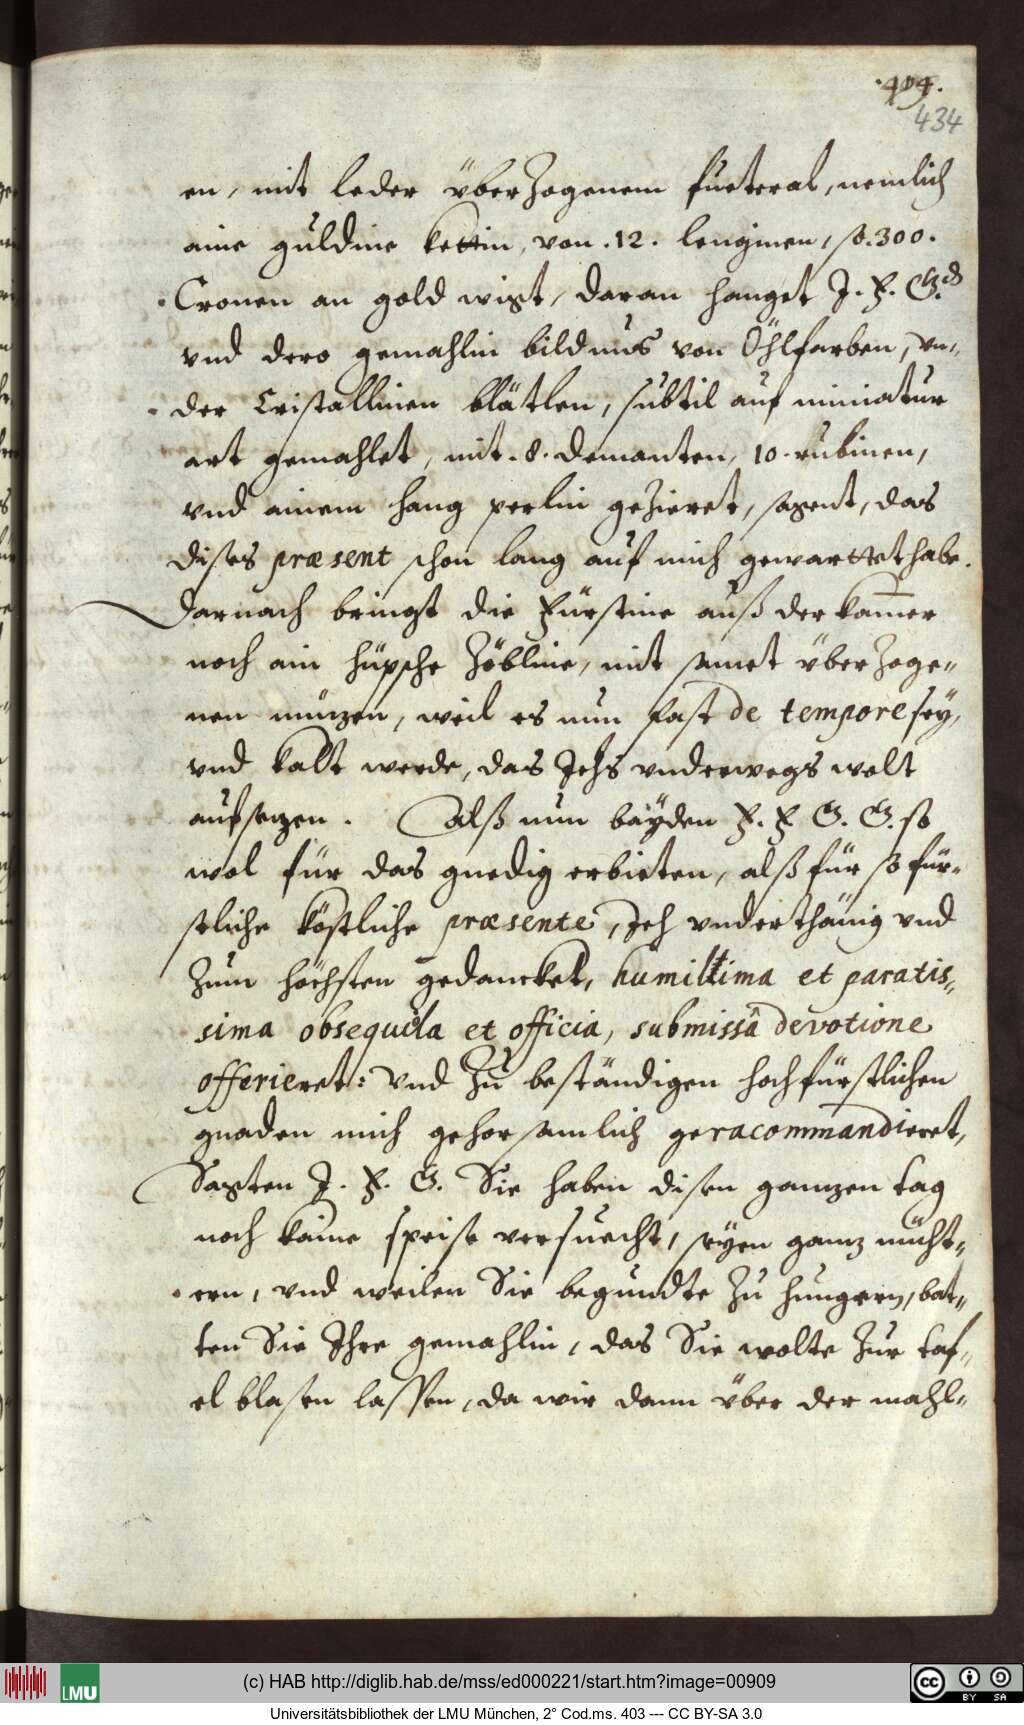 .404.
434
en, mit leder über Zogenem fueteral, nemlich
aine guldine kettin, von .12. lengimen, so .300.
Cronen an gold wigt, daran hanget J. F. G.
vnd dero gemahlin bildnus von Öhlfarben, vn„
der Cristallinen blätlen, subtil auf miniatur
art gemahlet, mit .8. demanten, 10. rubinen,
vnd ainem hang perlin gezieret, sagent, das
dises præsent schon lang auf mich gewarttet habe.
Darnach bringt die Fürstine auß der kam̄er
noch ain hüpsche Zöbline, mit samet über Zoge„
nen müzen, weil es nun fast de tempore sey,
vnd kalt werde, das Jchs vnderwegs wolt
aufsezen. Alß nun bäyden F. F. G. G. so
wol für das gnedig erbieten, alß für so für„
stliche köstliche præsente, Jch vnderthänig vnd
Zum höchsten gedancket, humillima et paratis„
sima obsequia et officia, submissâ devotione
offerieret: vnd Zu beständigen hochfürstlichen
gnaden mich gehorsamlich geracommandieret,
Sagten J. F. G. Sie haben disen ganzen tag
noch kaine speise versuecht, seyen ganz nücht„
ern, vnd weilen Sie begundte Zu hungern, bat„
ten Sie Jhre gemahlin, das Sie wolte Zur taf„
el blasen lassen, da wir dann über der mahl„
(c) HAB http://diglib.hab.de/mss/ed000221/start.htm?image=00909
LMU
cc BY SA
Universitätsbibliothek der LMU München, 2° Cod.ms. 403 --- CC BY-SA 3.0